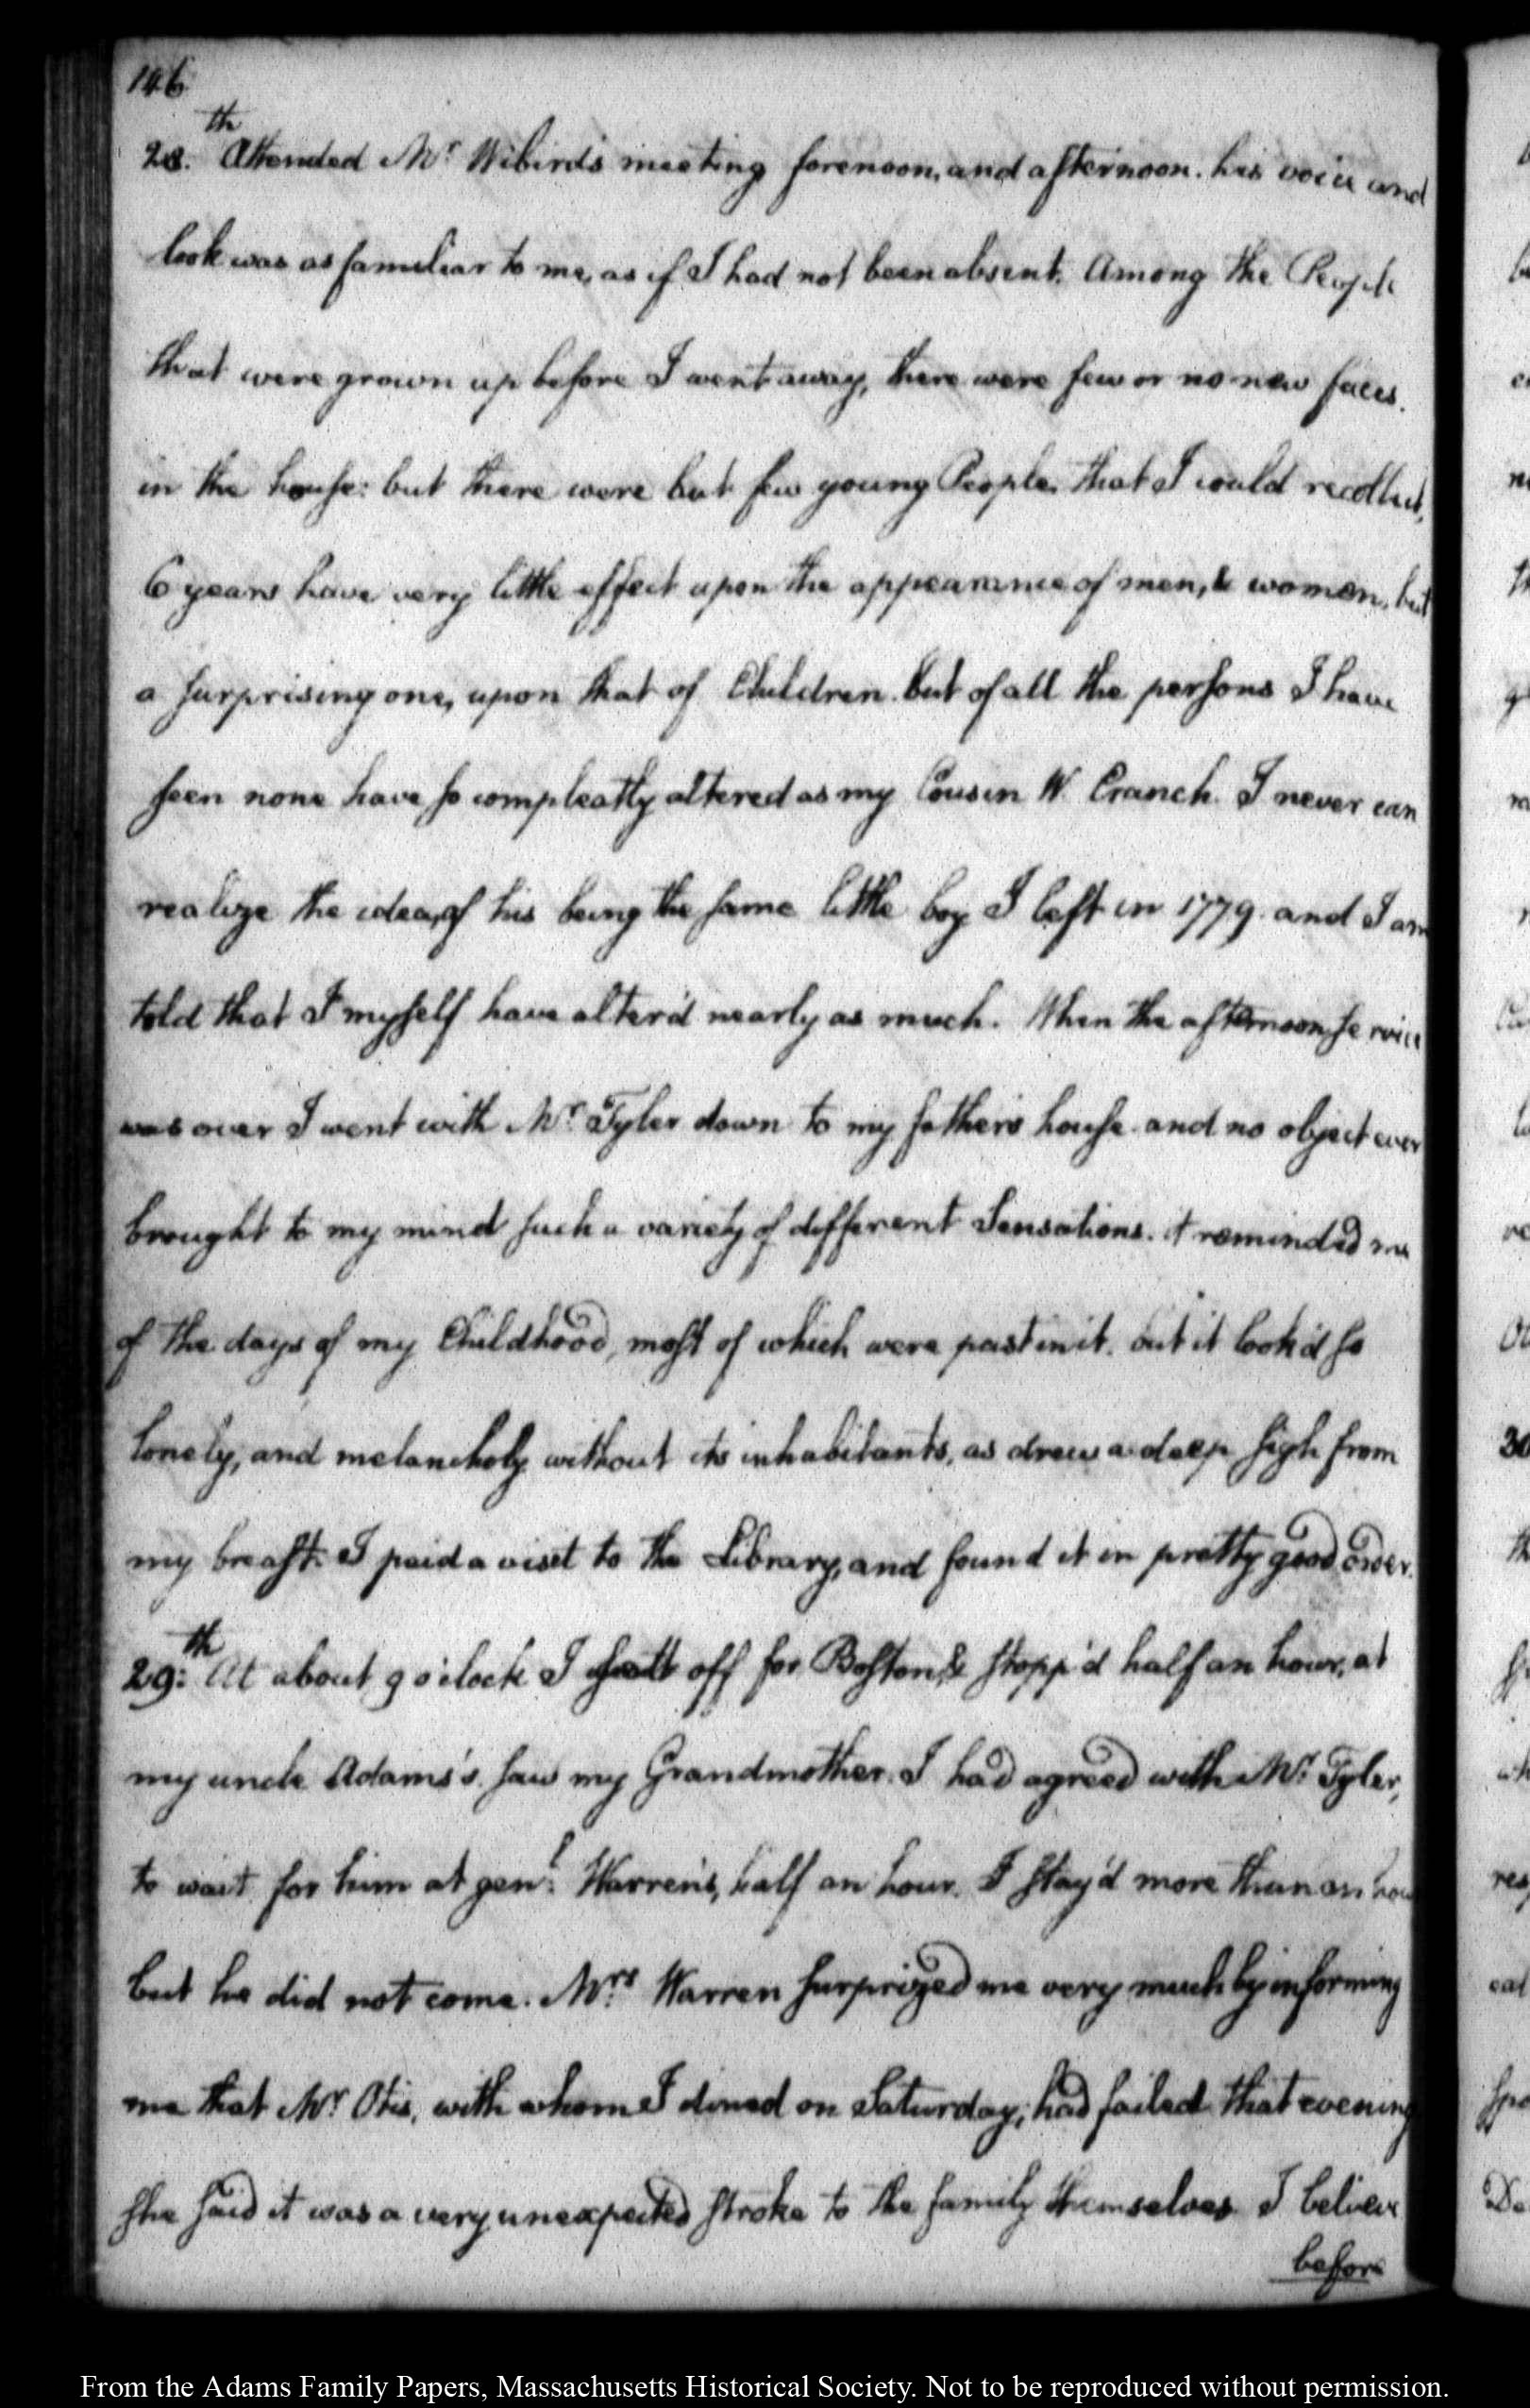 146
28.th Attended Mr. Wibird's meeting forenoon, and afternoon. his voice and
look was as familiar to me, as if I had not been absent. Among the People
that were grown up before I went away, there were few or no new faces.
in the house: but there were but few young People that I could recollect,
6 years have very little effect upon the appearance of men, & women, but
a surprising one, upon that of Children. but of all the persons I have
seen none have so compleatly altered as my Cousin W. Cranch. I never can
realize the idea, of his being the same little boy I left in 1779. and I am
told that I myself have alter'd nearly as much. When the afternoon service
was over I went with Mr. Tyler down to my father's house. and no object ever
brought to my mind such a variety of different Sensations. it reminded me
of the days of my Childhood, most of which were past in it. but it look'd so
lonely, and melancholy without its inhabitants, as drew a deep sigh from
my breast. I paid a visit to the Library, and found it in pretty good order.
29:th At about 9 o'clock I sett off for Boston, & stopp'd half an hour, at
my uncle Adams's. saw my Grandmother. I had agreed with Mr. Tyler,
to wait for him at genl: Warren's, half an hour. I stay'd more than an hour
but he did not come. Mrs. Warren surprized me very much by informing
me that Mr. Otis, with whom I dined on Saturday; had failed that evening
she said it was a very unexpected stroke to the family themselves. I believe
before
From the Adams Family Papers, Massachusetts Historical Society. Not to be reproduced without permission.